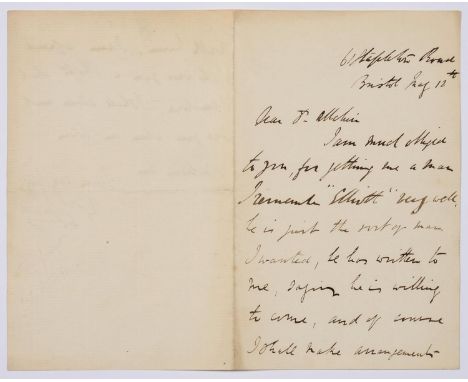 61 Stapleton Road
Bristol Aug 10th
Dear Dr
I am much obliged
to you, for getting me a man
I remember "Elliott" very well,
he is just the sort of man
I wanted, he has written to
me, saying he is willing
to come, and of course
I shall make arrangements